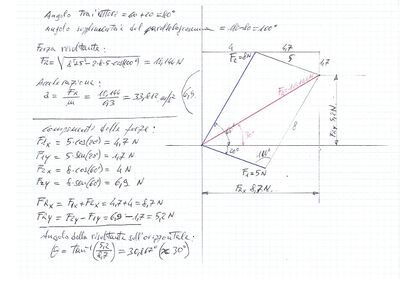 Angolo tra i vettori = 60+20=80°
angolo supplementare del parallelogramma = 180-80=100°
Forza risultante:
FR = √8²+5²-2·8·5·cos(100°) = 10,144 N
Accelerazione:
a = FR/m = 10,144/0,3 = 33,812 m/s²
componenti delle forze:
F1x = 5·cos(20°) = 4,7 N
F1y = 5·sen(20°) = 1,7 N
F2x = 8·cos(60°) = 4 N
F2y = 8·sen(60°) = 6,9 N
FRx = F1x + F2x = 4,7+4 = 8,7 N
FRy = F2y - F1y = 6,9-1,7 = 5,2 N
Angolo della risultante sull'orizzontale:
= tan⁻¹(5,2/8,7) = 30,867° (≈ 30°)
4
4,7
F2=8N
5
1,7
6,9
8
60°
20°
100°
F1=5N
FRy 5,2N
FRx 8,7N